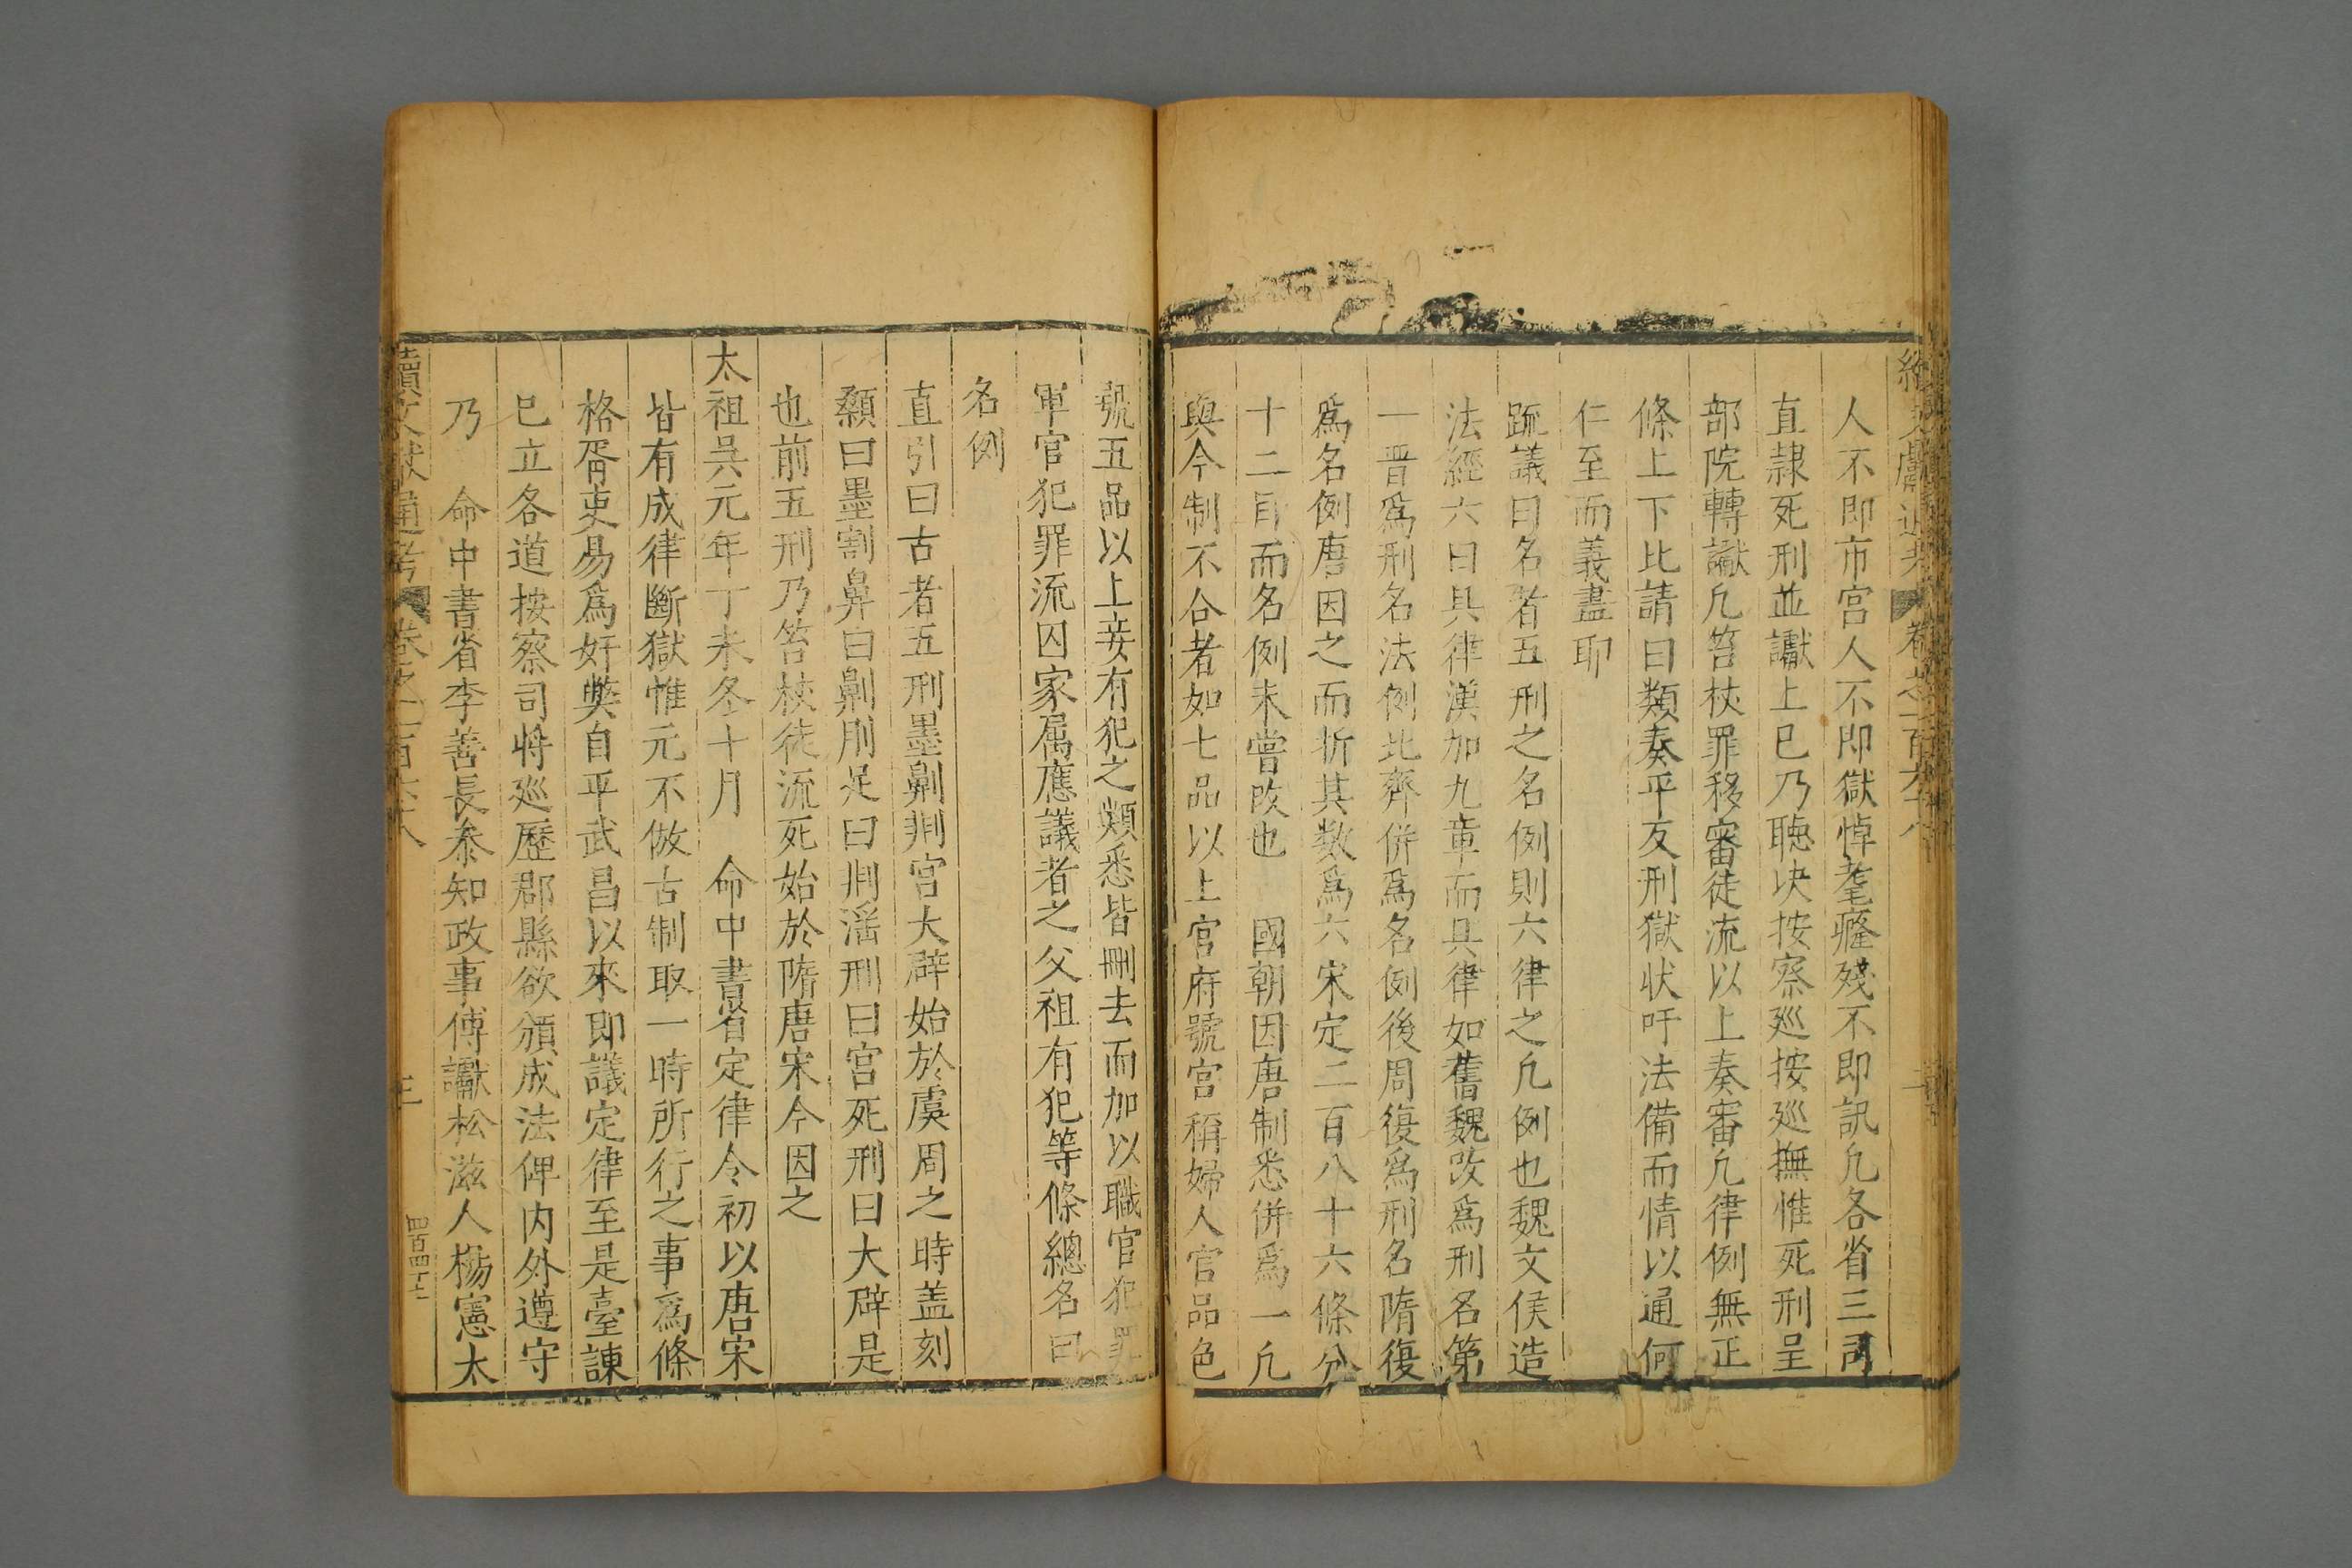 續文獻通考 卷之一百六十八
人不即市宫人不即獄悼耄癃殘不即訊凢各省三司
直隷死刑並讞上巳乃聴决按察廵按廵撫惟死刑呈
部院轉讞凢笞杖罪移審徒流以上奏審凢律例無正
條上下比請曰類奏平反刑獄状吁法備而情以通何
仁至而義盡耶
䟽議曰名者五刑之名例則六律之凢例也魏文侯造
法經六曰具律漢加九章而具律如舊魏改爲刑名第
一晋爲刑名法例北齊併爲名例後周復爲刑名隋復
爲名例唐因之而折其数爲六宋定二百八十六條分
十二目而名例未嘗改也 國朝因唐制悉併爲一凢
與今制不合者如七品以上官府號宫稱婦人官品色
號五品以上妾有犯之類悉皆刪去而加以職官犯罪
軍官犯罪流囚家属應議者之父祖有犯等條總名曰
名例
直引曰古者五刑墨劓剕宫大辟始於虞周之時盖刻
顙曰墨割鼻曰劓刖足曰剕滛刑曰宫死刑曰大辟是
也前五刑乃笞杖徒流死始於隋唐宋今因之
太祖吳元年丁未冬十月 命中書省定律令初以唐宋
皆有成律斷獄惟元不倣古制取一時所行之事爲條
格胥吏易爲奸獘自平武昌以來即議定律至是臺諫
巳立各道按察司将廵歷郡縣欲頒成法俾内外遵守
乃 命中書省李善長叅知政事傅讞松滋人楊憲太
續文獻通考 卷之一百六十八 三 四百四十七